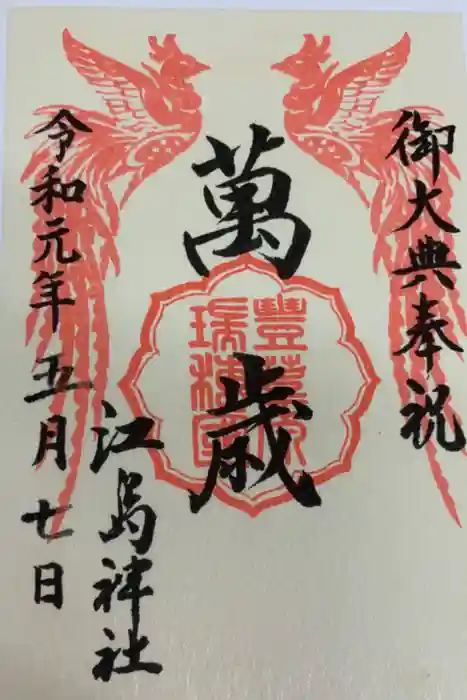 御大典奉祝
萬歳
豐葦原
瑞穂國
江島神社
令和元年五月七日